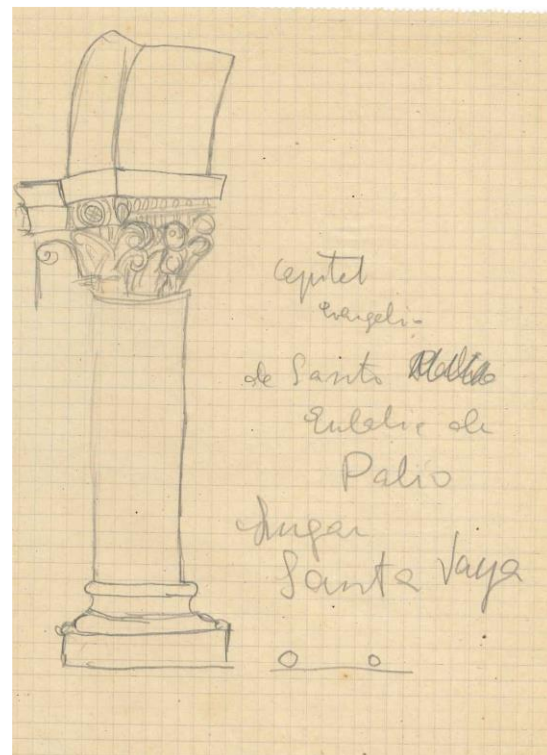 Capitel
Evangelio
de Santa
Eulalia de
Palio
Lugar
Santa Vaya